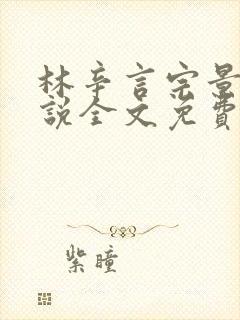 林辛言宗景
說全文免費
紫瞳